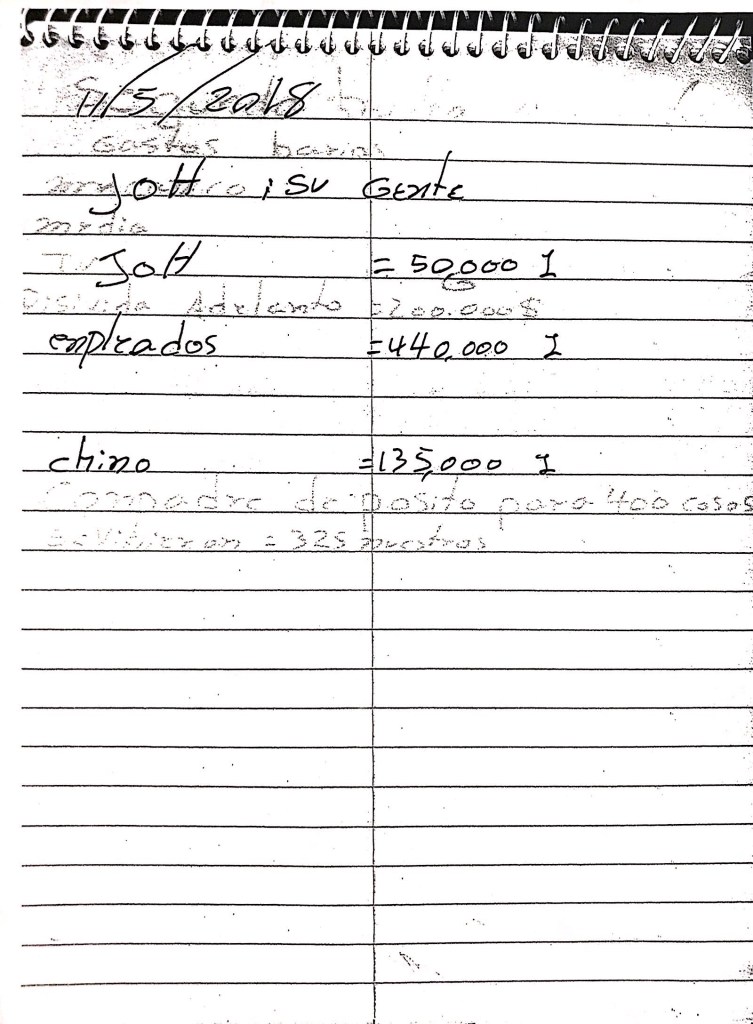 11/5/2018
Gastos barios
JOH i SU Gente
media
JOH = 50,000 I
Adelanto = 200.000$
empleados = 440,000 I
chino = 135,000 I
Comadre deposito para 400 cosas
= 325 nuestros